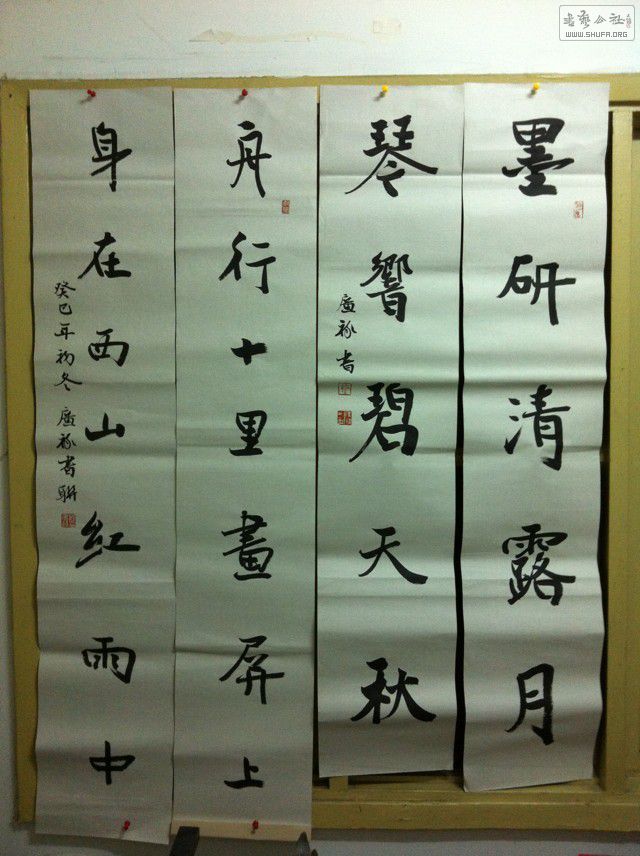 墨研清露月
琴響碧天秋
廣祿書
舟行十里畫屏上
身在西山紅雨中
癸巳年初冬 廣祿書聯
书艺公社
WWW.SHUFA.ORG